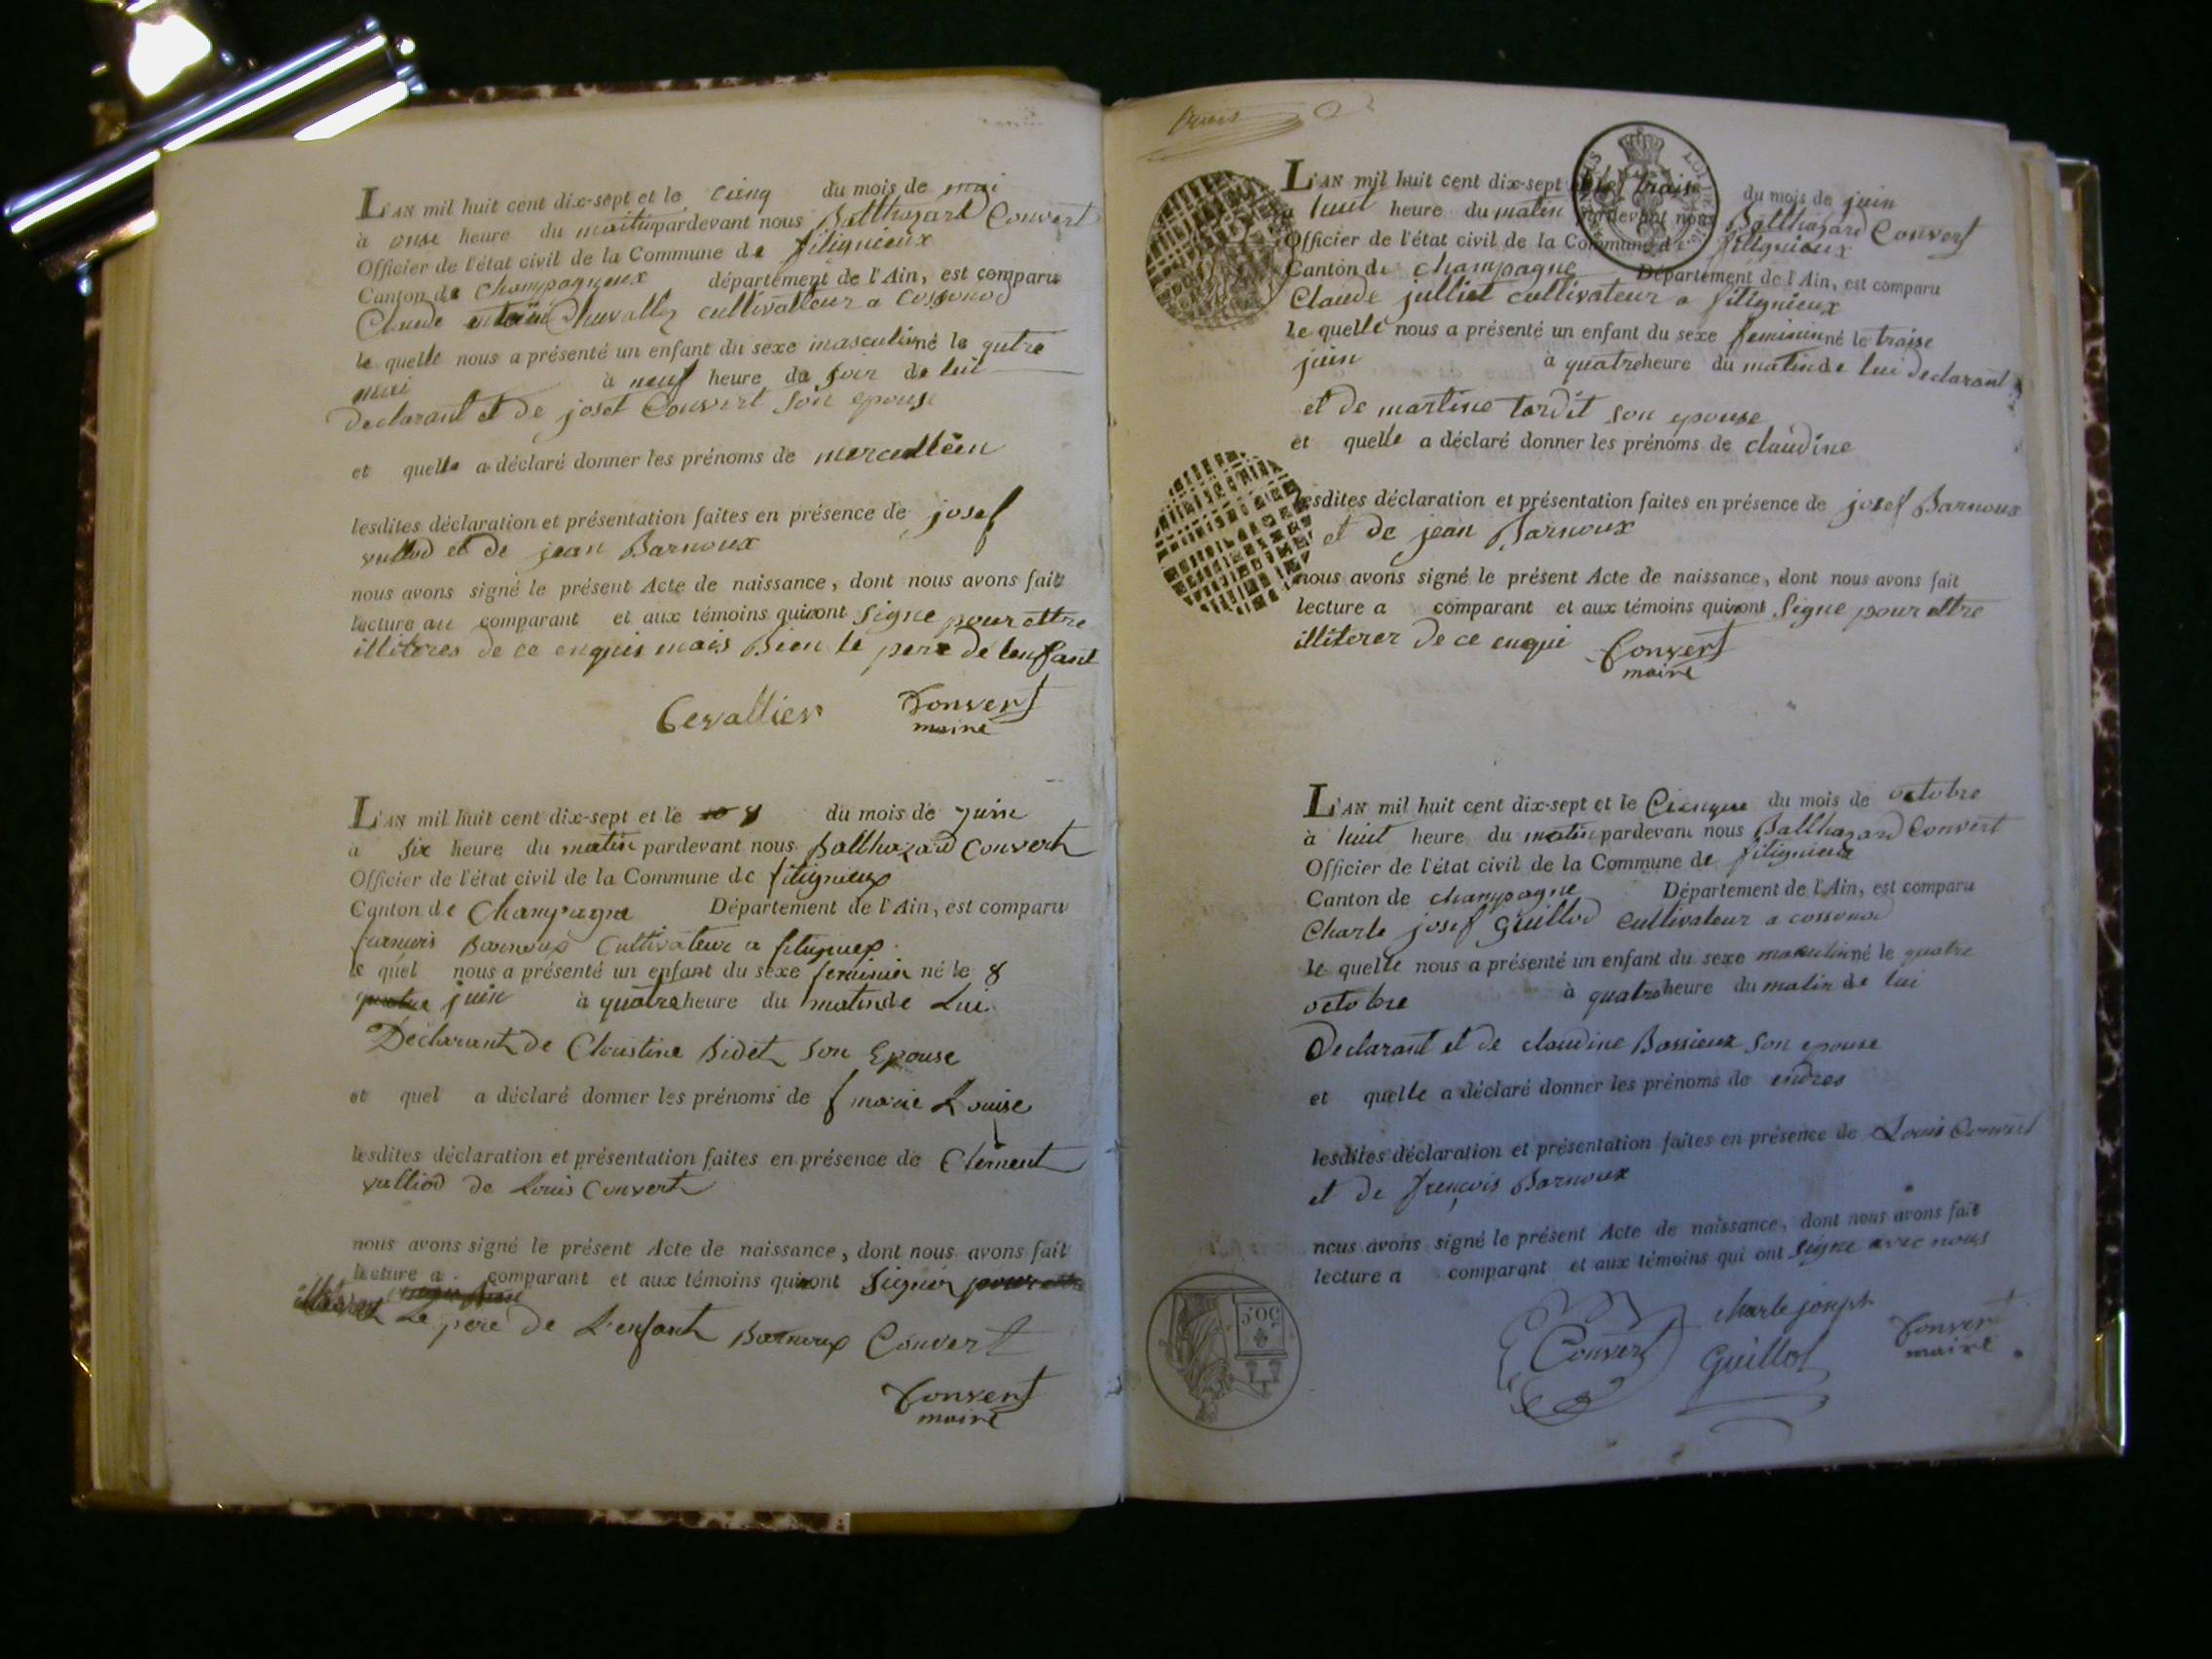 L'AN mil huit cent dix-sept et le cienq du mois de mai
à onse heure du maitin pardevant nous Balthazard Convert
Officier de l'état civil de la Commune de fitignieux
Canton de Champagneux département de l'Ain, est comparu
Claude Chevallez cultivatteur a Cossonod
le quelle nous a présenté un enfant du sexe masculin né le qutre
mai à neuf heure du soir de lui
declarant et de joset Convert son epouse
et quelle a déclaré donner les prénoms de
lesdites déclaration et présentation faites en présence de josef
vulliod et de jean Barnoux
nous avons signé le présent Acte de naissance, dont nous avons fait
lecture au comparant et aux témoins qui nont signe pour ettre
illiteres de ce enquis mais Bien le pere de lenfant
Cevallier Convert
maire
L'AN mil huit cent dix-sept et le 8 du mois de juin
à six heure du matin pardevant nous Balthazard Convert
Officier de l'état civil de la Commune de fitignieux
Canton de Champagne Département de l'Ain, est comparu
francois Barnoux Cultivateur a fitignieux
le quel nous a présenté un enfant du sexe feminin né le 8
juin à quatre heure du matin de Lui
Declarant de Christine Bidet Son Epouse
et quel a déclaré donner les prénoms de marie Louise
lesdites déclaration et présentation faites en présence de Clement
vulliod de Louis Convert
nous avons signé le présent Acte de naissance, dont nous avons fait
lecture a comparant et aux témoins qui nont Signér
Le pere de L'enfant Barnoux Convert
Convert
maire
L'AN mil huit cent dix-sept et le trais du mois de juin
à huit heure du matin pardevant nous Balthazard Convert
Officier de l'état civil de la Commune de fitignieux
Canton de champagne Département de l'Ain, est comparu
Claude julliet cultivateur a fitignieux
le quelle nous a présenté un enfant du sexe feminin né le traise
juin à quatre heure du matin de lui declarant
et de martine tardit son epouse
et quelle a déclaré donner les prénoms de claudine
lesdites déclaration et présentation faites en présence de josef Barnoux
et de jean Barnoux
nous avons signé le présent Acte de naissance, dont nous avons fait
lecture a comparant et aux témoins qui nont signe pour ettre
illiterer de ce enqui Convert
maire
L'AN mil huit cent dix-sept et le Cienque du mois de octobre
à huit heure du matin pardevant nous Balthazard Convert
Officier de l'état civil de la Commune de fitignieux
Canton de champagne Département de l'Ain, est comparu
Charle josef Guillod cultivateur a cossonod
le quelle nous a présenté un enfant du sexe masculin né le quatre
octobre à quatre heure du matin de lui
Declarant et de claudine Bossieux son epouse
et quelle a déclaré donner les prénoms de endres
lesdites déclaration et présentation faites en présence de Louis Convert
et de françois Barnoux
nous avons signé le présent Acte de naissance, dont nous avons fait
lecture a comparant et aux témoins qui ont signe avec nous
Convert charle joseph Guillot Convert
maire
50ᶜ